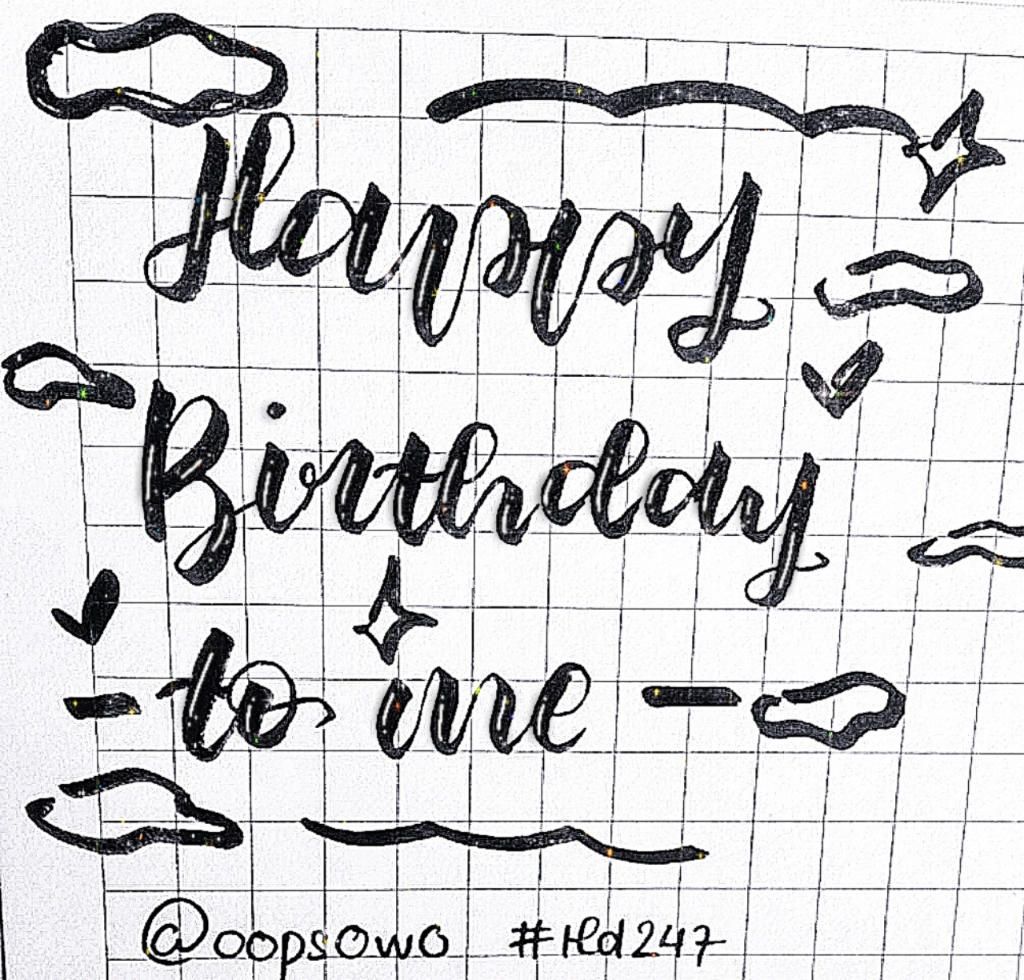 Happy
Birthday
to me
@oopsowo #Hd247